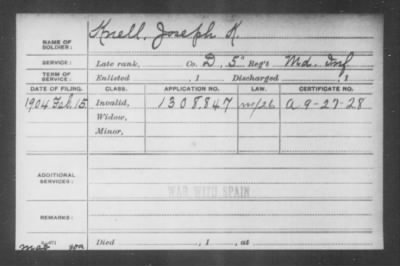 NAME OF SOLDIER: Knell, Joseph K.
SERVICE: Late rank, Co. D, 5" Reg't Md. Inf
TERM OF SERVICE: Enlisted , 1 Discharged , 1
DATE OF FILING. CLASS. APPLICATION NO. LAW. CERTIFICATE NO.
1904 Feb. 15 Invalid, 1308,847 A 9-27-28
Widow,
Minor,
ADDITIONAL SERVICES:
WAR WITH SPAIN
REMARKS:
Died , 1 , at